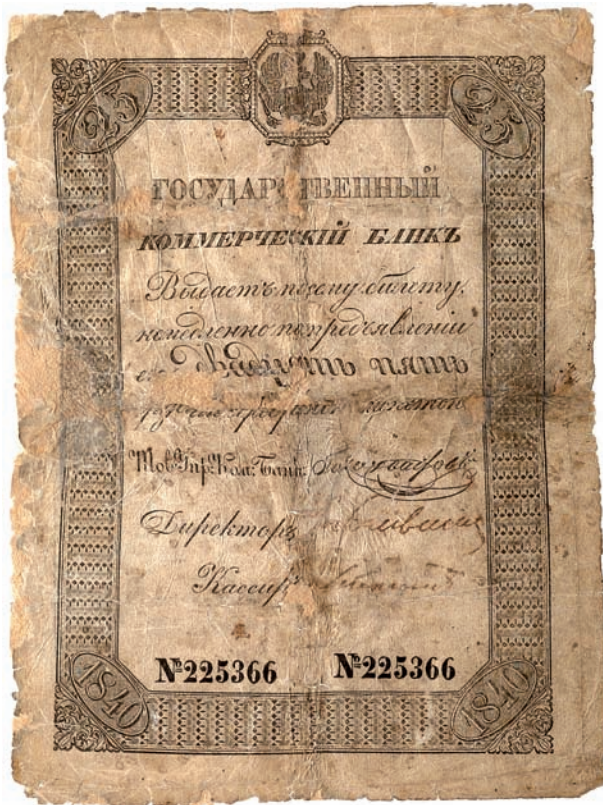 25 25
ГОСУДАРСТВЕННЫЙ
КОММЕРЧЕСКІЙ БАНКЪ
Выдаетъ по сему билету,
немедленно по предъявленіи
его Двадцать пять
серебряною монетою
Тов. Упр. Ком. Банк.
Директоръ
Кассиръ
№225366 №225366
1840 1840